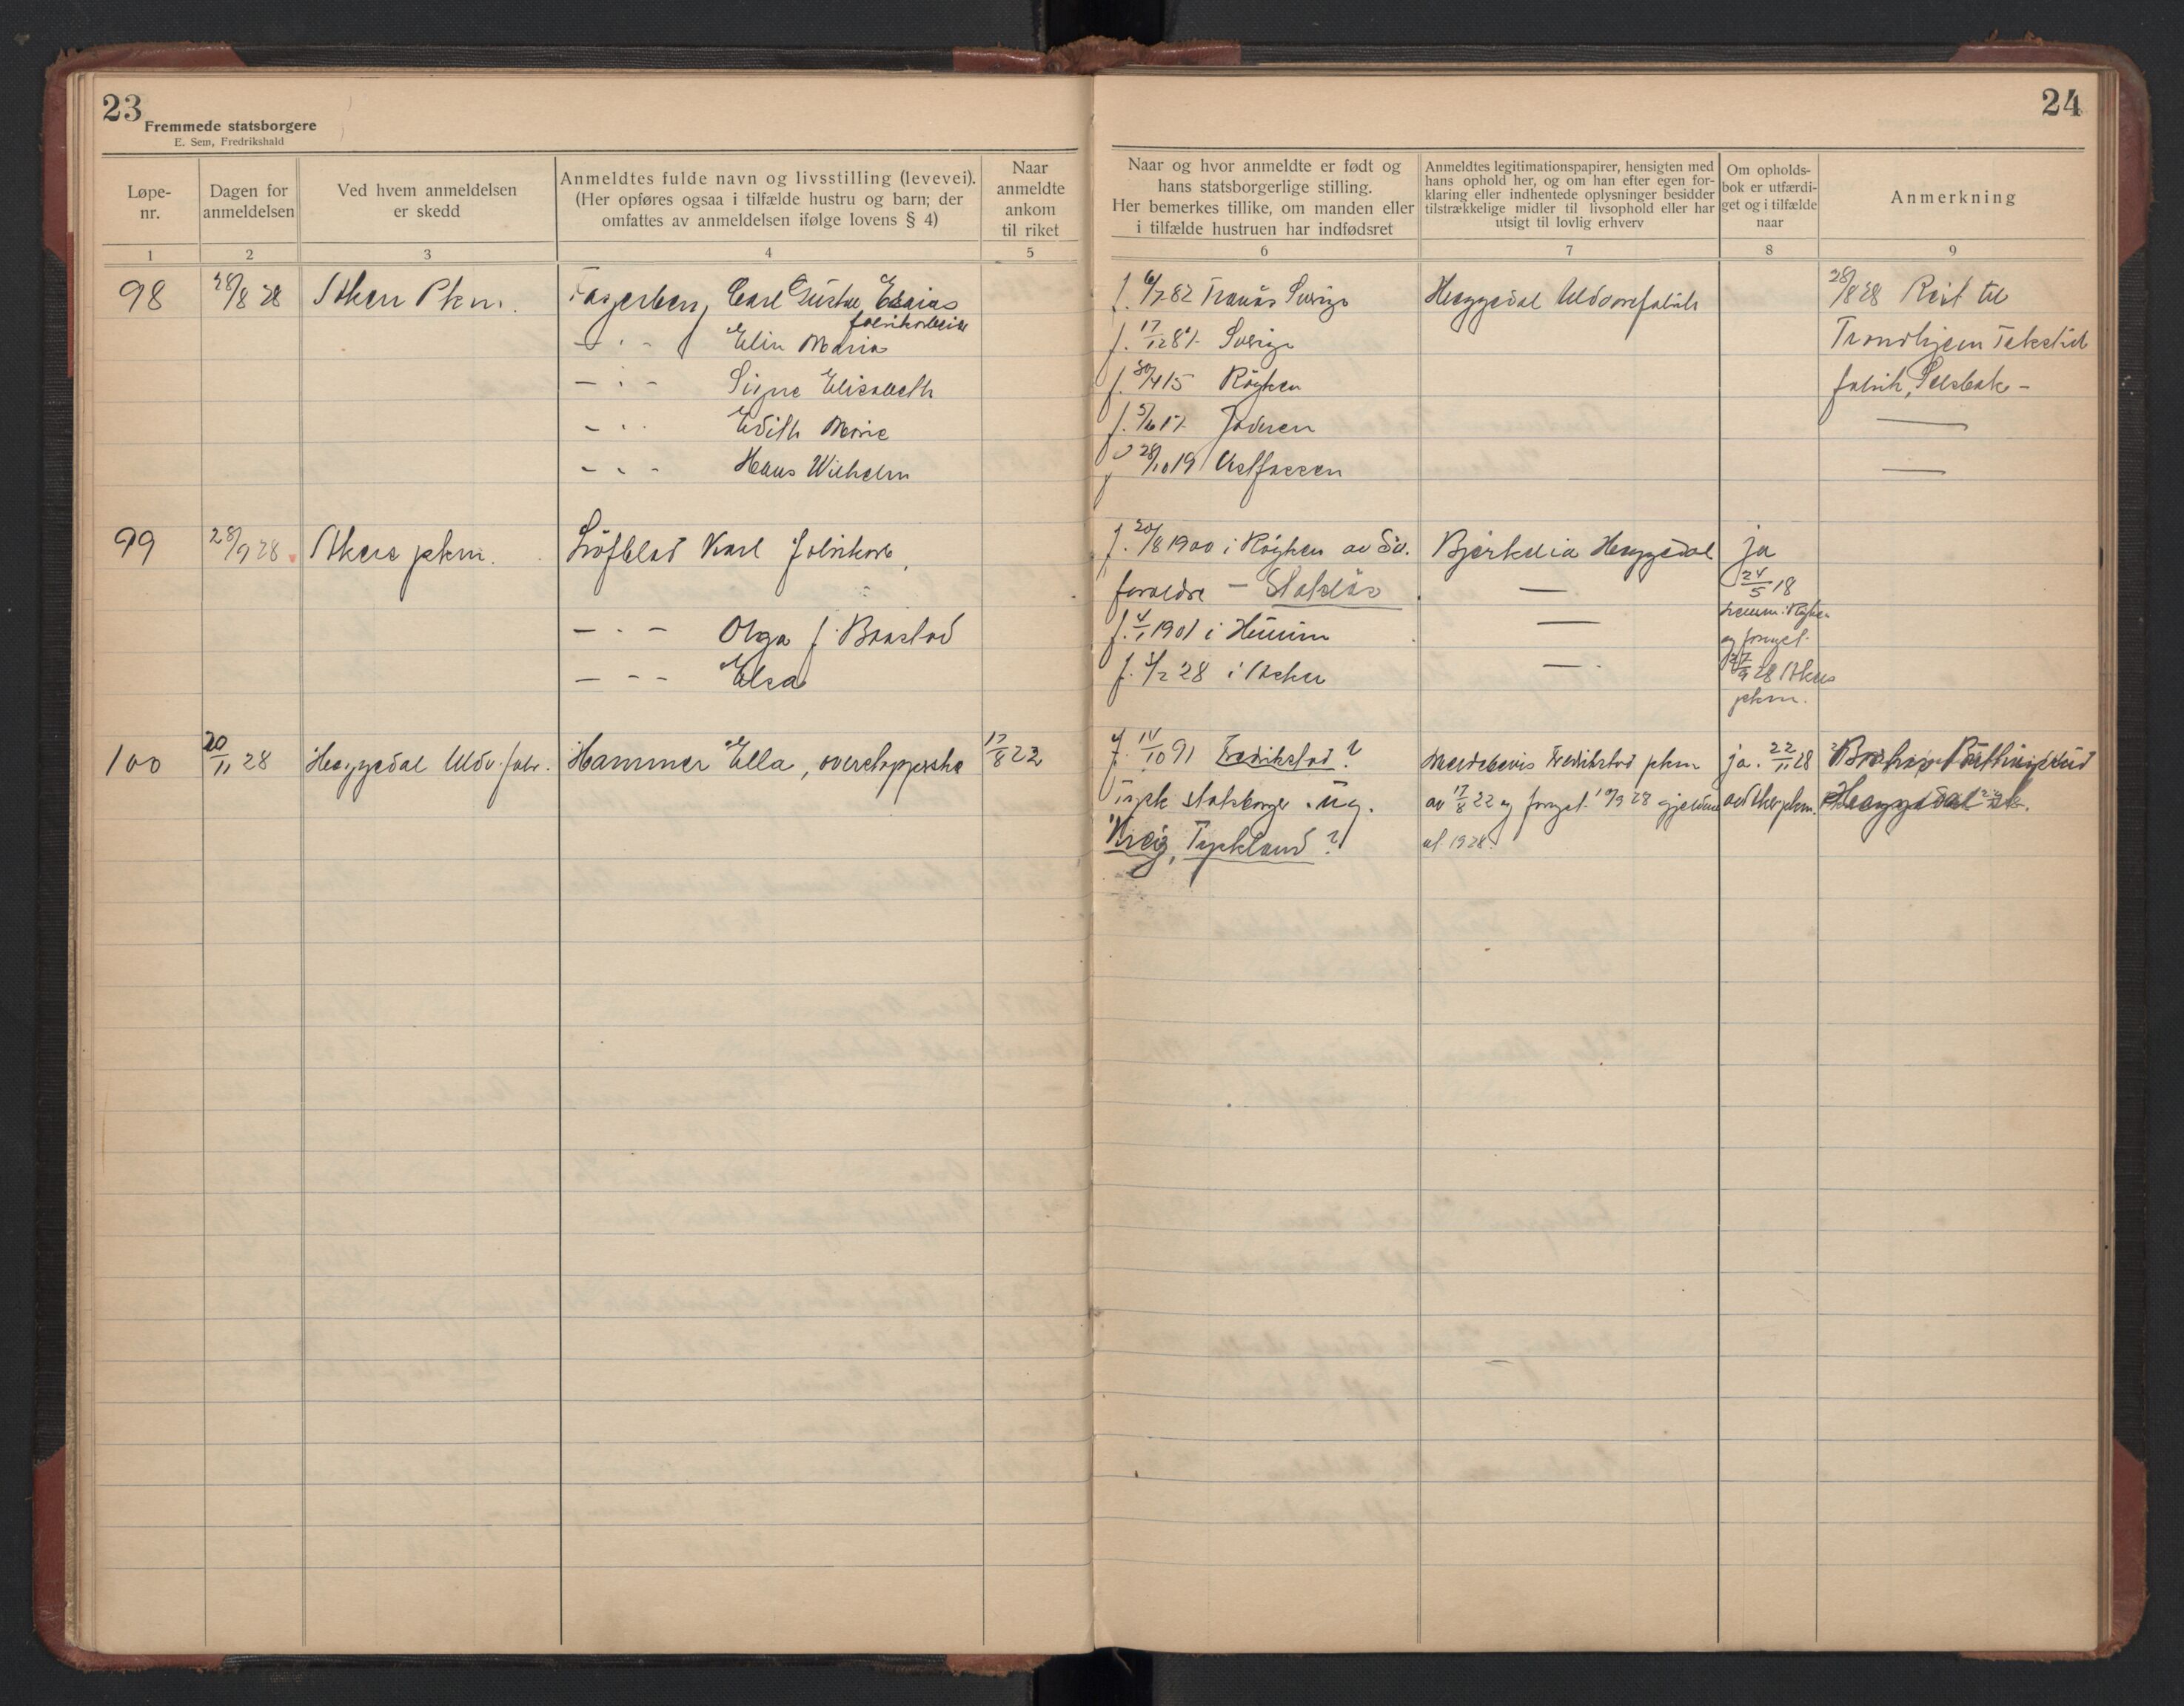 23
Fremmede statsborgere
E. Sem, Fredrikshald
Løpe-
nr.
Dagen for
anmeldelsen
Ved hvem anmeldelsen
er skedd
Anmeldtes fulde navn og livsstilling (levevei).
(Her opføres ogsaa i tilfælde hustru og barn; der
omfattes av anmeldelsen ifølge lovens § 4)
Naar
anmeldte
ankom
til riket
1 2 3 4 5
98 28/8 28 Aker Pkm. Fagerberg, Carl Gustav Esaias
fabrikarbeider
— " — Elin Maria
— " — Signe Elisabeth
— " — Edith Marie
— " — Hans Wilhelm
99 28/9 28 Akers pkm. Löfblad Karl fabrikarb.
— " — Olga f. Braastad
— " — Elsa
100 20/11 28 Heggedal Uldv. fabr. Hammer Ella, overstopperske 17/8 22
24
Naar og hvor anmeldte er født og
hans statsborgerlige stilling.
Her bemerkes tillike, om manden eller
i tilfælde hustruen har indfødsret
Anmeldtes legitimationspapirer, hensigten med
hans ophold her, og om han efter egen for-
klaring eller indhentede oplysninger besidder
tilstrækkelige midler til livsophold eller har
utsigt til lovlig erhverv
Om opholds-
bok er utfærdi-
get og i tilfælde
naar
Anmerkning
6 7 8 9
f. 6/7 82 Tranås Sverige Heggedal Uldvarefabrik 28/8 28 Reist til
f. 17/12 81 Sverige Trondhjem Tekstil
f. 30/4 15 Røyken fabrik, Selsbak —
f. 5/6 17 —
f. 28/10 19 Vestfossen —
f. 20/8 1900 i Røyken av Sv. Bjerkelia Heggedal ja
foreldre — Statsløs — 24/5 18
f. 4/1 1901 i Hurum — Røyken
og fornyet
f. 3/2 28 i Asker — 27/9 28 Akers
pkm.
f. 14/10 91 Fredrikstad? Meldebevis Fredrikstad pkm ja. 22/11 28
tysk statsborger. ug. av 17/8 22 og fornyet 10/9 28 gjeldende av Aker pkm. Heggedal st.
Tyskland? ut 1928.